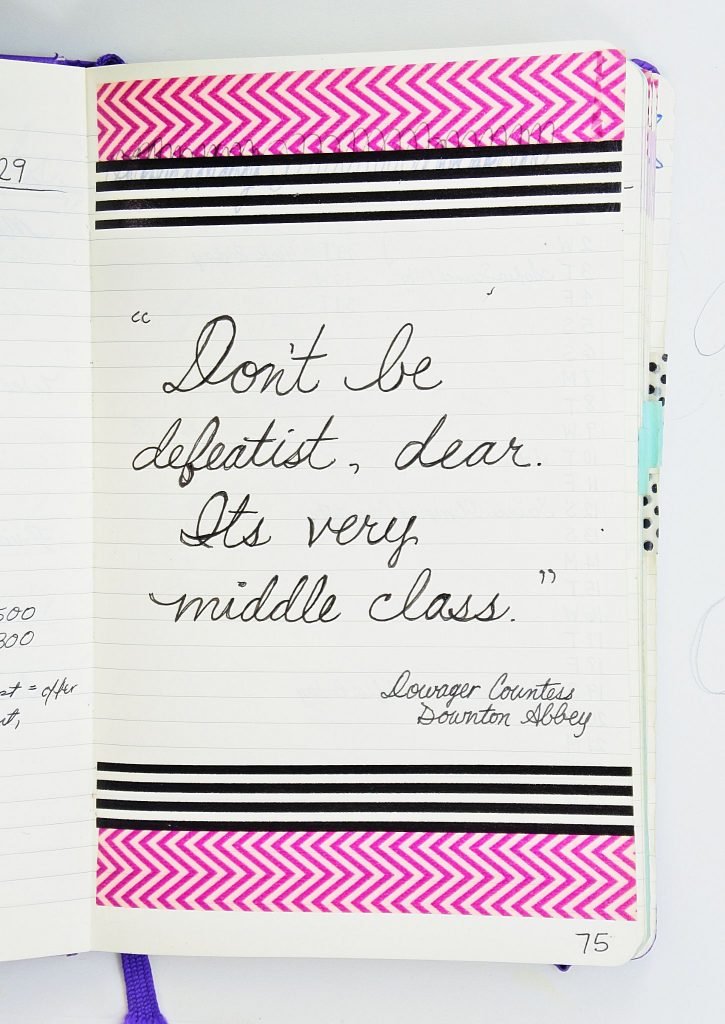 29
“ Don't be
defeatist, dear.
Its very
middle class. ”
Dowager Countess
Downton Abbey
500
300
= offer
75